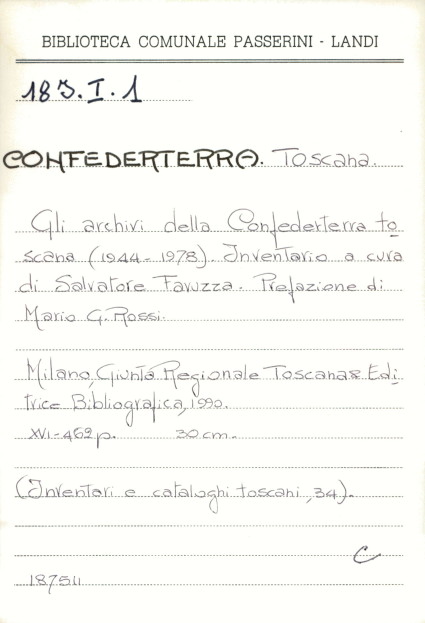 BIBLIOTECA COMUNALE PASSERINI - LANDI
183.I.1
CONFEDERTERRA. Toscana.
Gli archivi della Confederterra to-
scana (1944-1978). Inventario a cura
di Salvatore Favuzza. Prefazione di
Mario G. Rossi.
Milano, Giunta Regionale Toscana & Edi-
trice Bibliografica, 1990.
XVI-462 p. 30 cm.
(Inventari e cataloghi toscani, 34).
C
187511